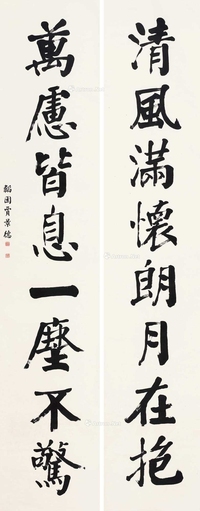 清風滿懷朗月在抱
萬慮皆息一塵不驚
韜園賈景德